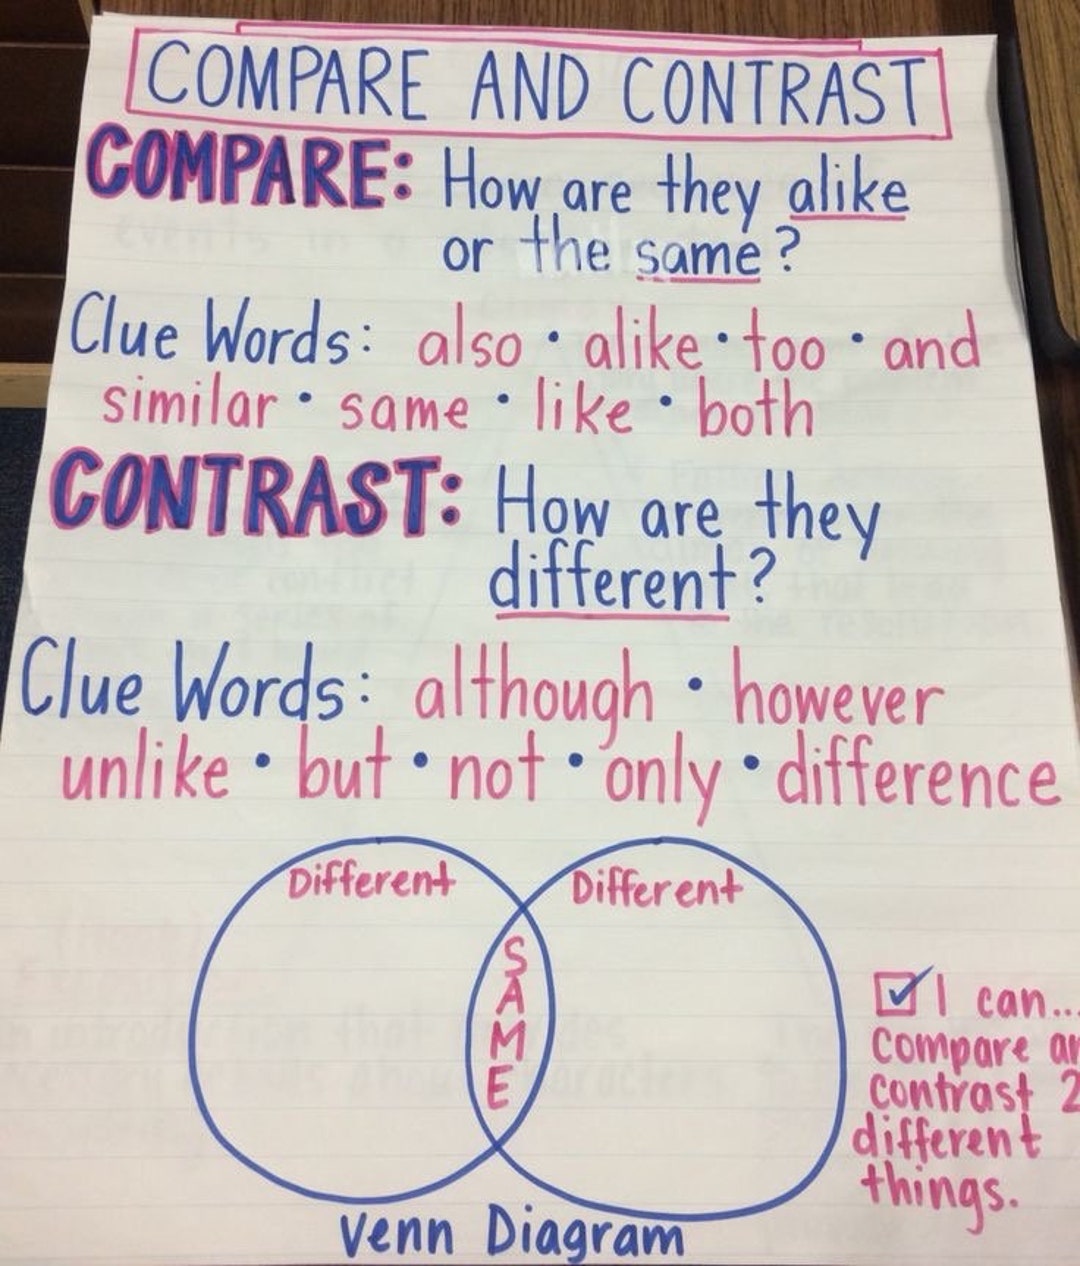 COMPARE AND CONTRAST
COMPARE: How are they alike
or the same?
Clue Words: also • alike • too • and
similar • same • like • both
CONTRAST: How are they
different?
Clue Words: although • however
unlike • but • not • only • difference
Different Different
SAME
I can...
compare
contrast 2
different
things.
Venn Diagram